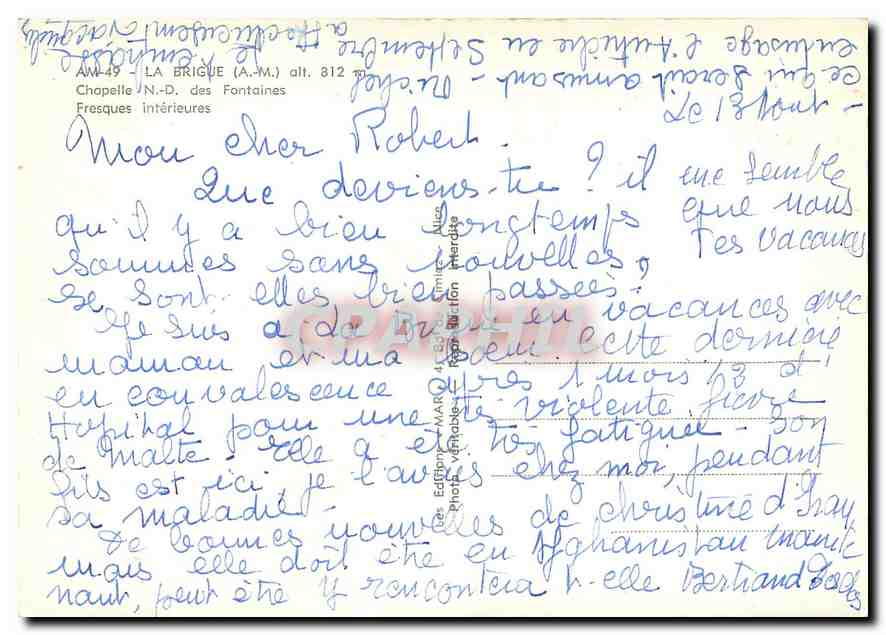 AM-49 - LA BRIGUE (A.-M.) alt. 812 m
Chapelle N.-D. des Fontaines
Fresques intérieures
Le 13 Aout -
Mon cher Robert.
Que deviens-tu ? il me semble
qu'il y a bien longtemps que nous
sommes sans nouvelles, Tes vacances
se sont-elles bien passées ?
Je suis à La Brigue en vacances avec
maman et ma soeur. Cette dernière
en convalescence après 1 mois 1/2 d'
Hopital pour une très violente fièvre
de Malte - Elle a été très fatiguée - Son
fils est ici, je l'avais chez moi, pendant
sa maladie -
De bonnes nouvelles de Christine d'Iran
mais elle doit être en Afghanistan mainte
nant, peut être y rencontrera t-elle Bertrand
ce qui serait amusant - Michel
envisage l'Autriche en Septembre
Je t'embrasse
affectueusement
Les Editions "MAR" 4, Bd de Cimiez - Nice
Photo véritable - Reproduction interdite
CPAPHIL